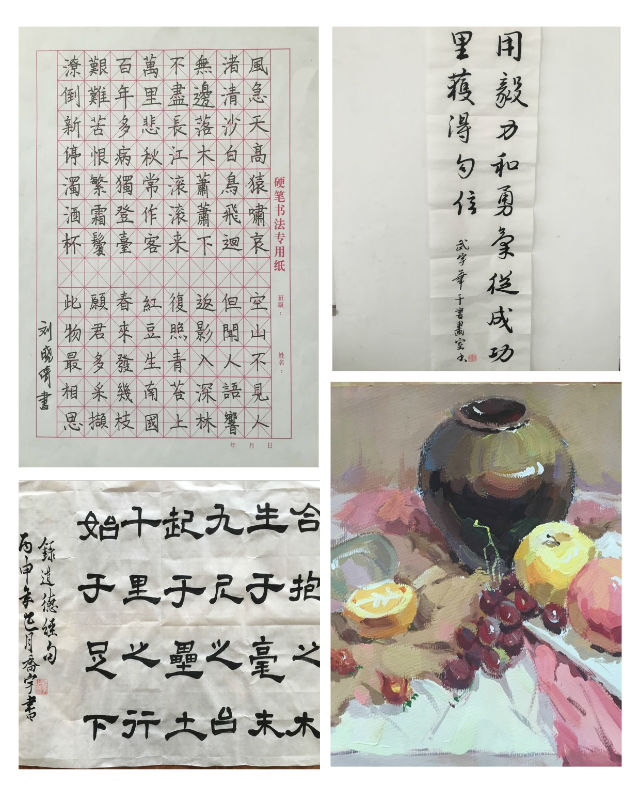 硬笔书法专用纸
班级：
姓名：
風急天高猿嘯哀
渚清沙白鳥飛迴
無邊落木蕭蕭下
不盡長江滾滾来
萬里悲秋常作客
百年多病獨登臺
艱難苦恨繁霜鬢
潦倒新停濁酒杯
空山不見人
但聞人語響
返影入深林
復照青苔上
紅豆生南國
春來發幾枝
願君多采擷
此物最相思
刘晓晴書
年 月 日
用毅力和勇氣從成功
里獲得自信
武宇華于書畫室书
合抱之木
生于毫末
九尺之台
起于壘土
千里之行
始于足下
錄道德經句
丙申年七月喬宇書